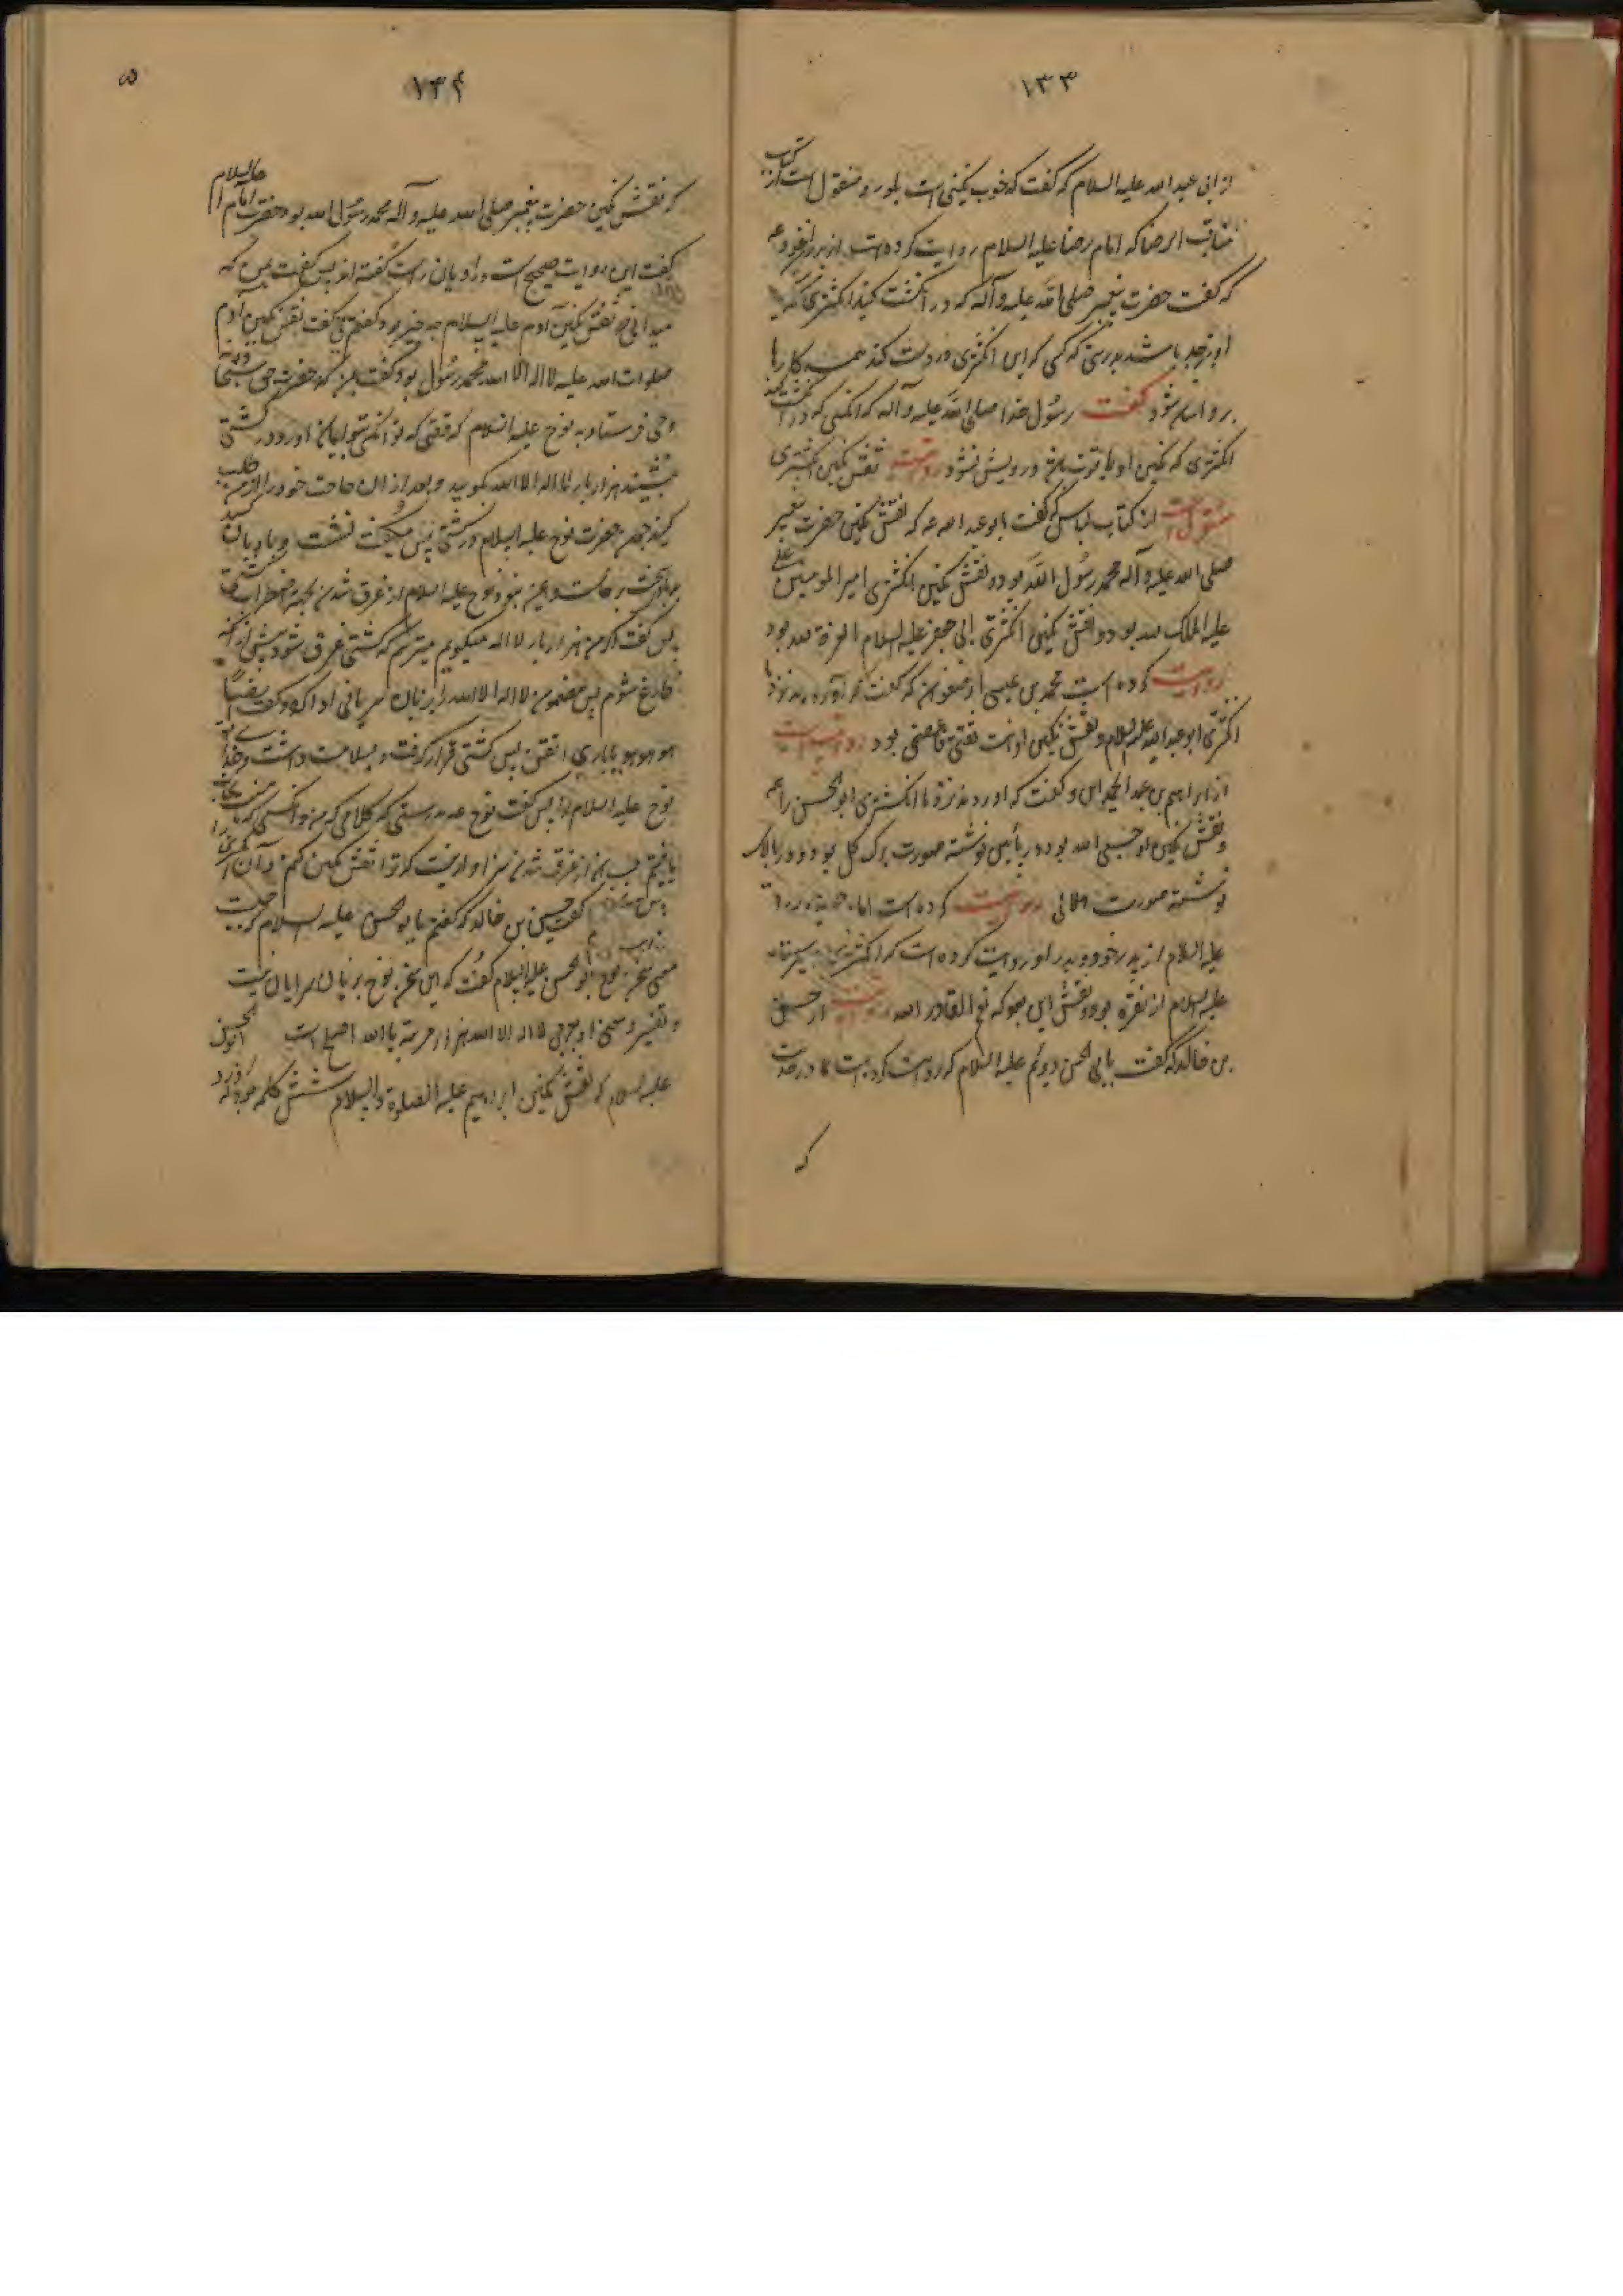 ۱۳۳
از ابی عبد الله علیه السلام که گفت که خوب نگینی است بلور و منقول است از کتاب
مناقب الرضا که امام رضا علیه السلام روایت کرده است از پدران خود ع
که گفت حضرت پیغمبر صلی الله علیه و آله که در انگشت کنید انگشتری که نگین
او زبرجد باشد بدرستی که کسی که این انگشتری در دست کند همه کارها
برو آسان شود گفت رسول خدا صلی الله علیه و آله که آنکسی که در انگشت کند
انگشتری که نگین او یاقوت باشد درویش نشود روایت نقش نگین انگشتری
منقول است از کتاب لباس که گفت ابو عبد الله ع که نقش نگین حضرت پیغمبر
صلی الله علیه و آله محمد رسول الله بود و نقش نگین انگشتری امیر المومنین علی
علیه الملک لله بود و نقش نگین انگشتری ابی جعفر علیه السلام العزة لله بود
روایت کرده است محمد بن عیسی از صفوان که گفت که آورده بودند نزد ما
انگشتری ابو عبد الله علیه السلام و نقش نگین او انت ثقتی فاعصمنی بود روایت است
از ابراهیم بن عبد الحمید که او گفت که آوردند نزد ما انگشتری ابو الحسن را ع
و نقش نگین او حسبی الله بود در پایین نوشته صورت برک گل بود و در بالای
نوشته صورت هلالی روایت کرده است امام
علیه السلام از پدر خود و پدر او روایت کرده است که انگشتری
علیه السلام از نقره بود و نقش این بود که نعم القادر الله روایت از حسین
بن خالد که گفت بابی الحسن دویم علیه السلام که روایت کرده است که در حدیث
که
۱۳۴
که نقش نگین حضرت پیغمبر صلی الله علیه و آله محمد رسول الله بود حضرت امام علیه السلام
گفت این روایت صحیح است و راویان راست گفته اند پس گفت بمن که
میدانی که نقش نگین آدم علیه السلام چه چیز بود گفتم نی گفت نقش نگین آدم
صلوات الله علیه لا اله الا الله محمد رسول الله بود و گفت بمن که حضرت حق سبحانه
وحی فرستاد به نوح علیه السلام که وقتی که تو و آنکس که ایمان آورد در کشتی
بنشینند هزار بار لا اله الا الله بگویید و بعد از ان حاجت خود را از من طلب
کنید چون حضرت نوح علیه السلام در کشتی نشست و بادبان
برداشت بر خاست و ایمن نبود نوح علیه السلام از غرق شدن بجهة اضطراب
پس گفت اگر من هزار بار لا اله میگویم میترسم که کشتی غرق شود پیش از آنکه
فارغ شوم پس مضمون لا اله الا الله را بزبان سریانی ادا کرد و گفت
هو هو هو یا باری اتقن پس کشتی قرار گرفت و بسلامت داشت خدا
نوح علیه السلام را پس گفت نوح ع بدرستی که کلامی که من و آنکس که با من نجات
یافتیم بسبب آن از غرق شدن سزاوار نیست که او را نقش نگین نکنم
گفت حسین بن خالد که گفتم یا ابو الحسن علیه السلام که چیست
معنی سخن نوح ابو الحسن علیه السلام گفت که این سخن نوح بزبان سریان نیست
و تفسیر و معنی او بعربی لا اله الا الله هزار مرتبه یا الله اصلح است
علیه السلام که نقش نگین ابراهیم علیه الصلوة و السلام شش کلمه بود که